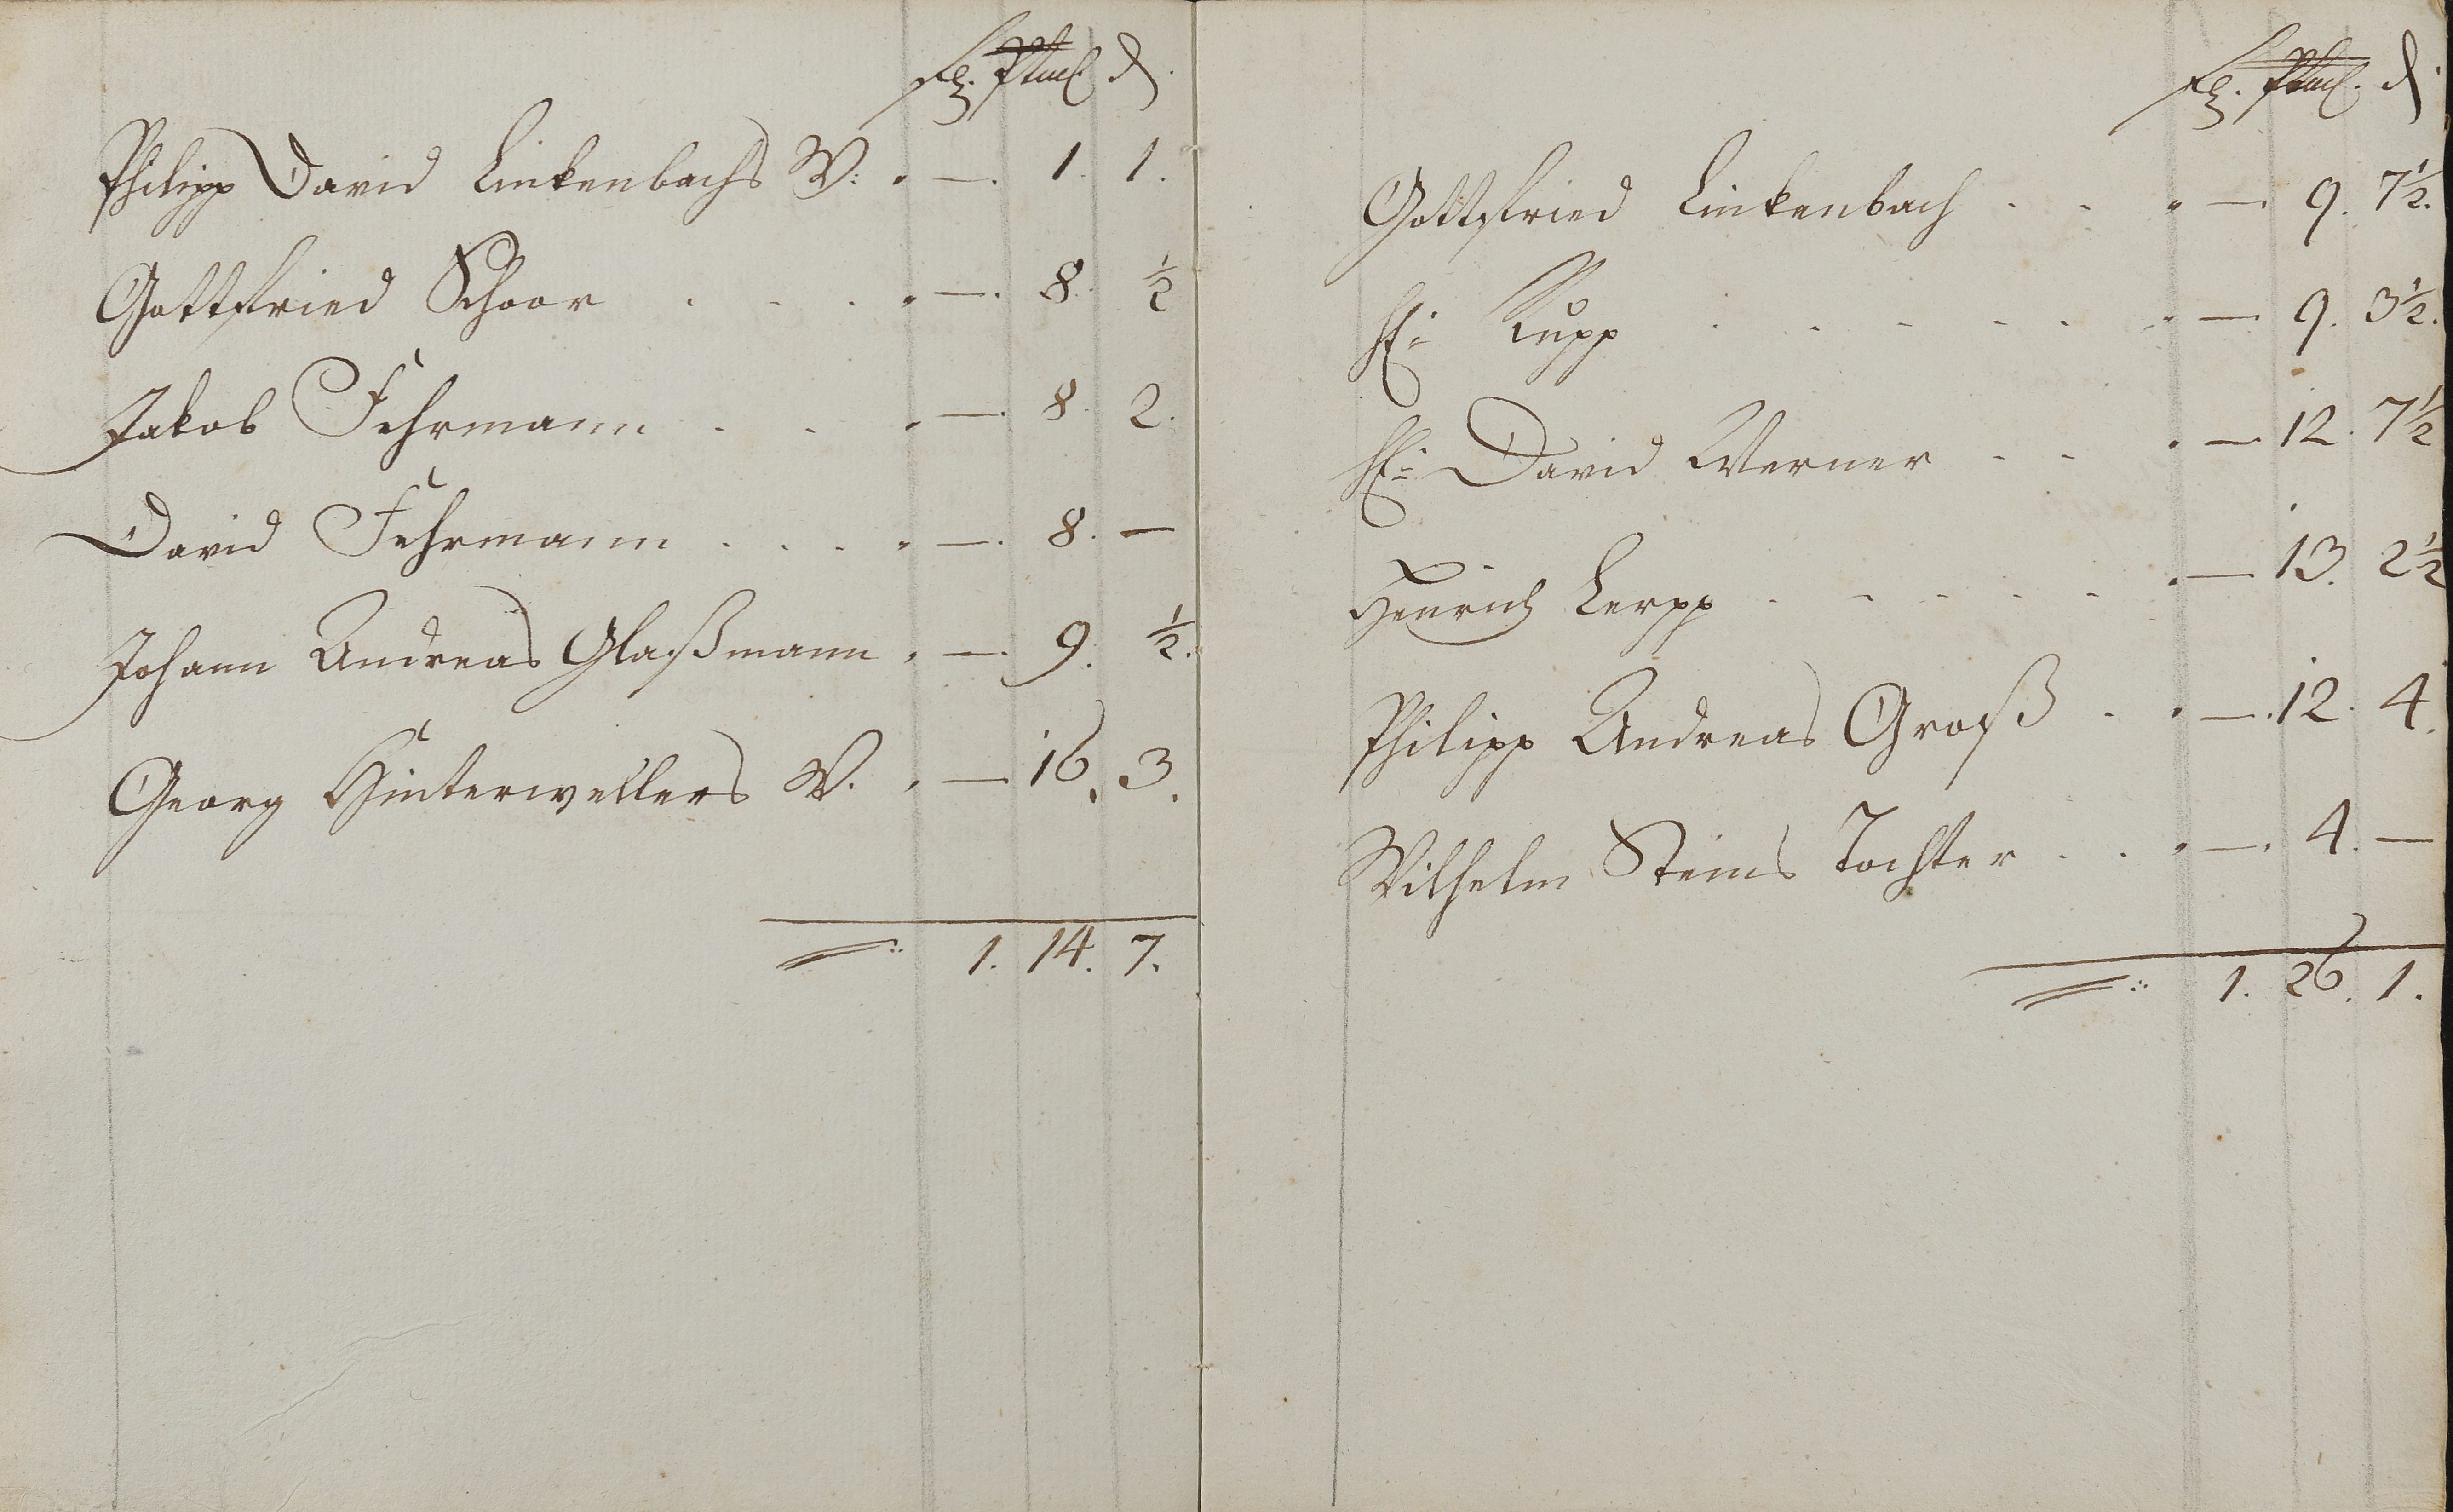 Philipp David Linkenbachs W: . —. 1. 1.
Gottfried Schoor . . . . —. 8. ½
Jakob Fehrmann . . . —. 8. 2.
David Fehrmann . . . . —. 8. —
Johann Andreas Glaßmann . —. 9. ½.
Georg Hinterwellers W. . — 16. 3.
1. 14. 7.
Gottfried Linkenbach . . . — 9. 7½.
H: Rupp . . . . . . — 9. 3½.
H: David Werner . . . — 12. 7½
Henrich Lerpp . . . . . . — 13. 2½
Philipp Andreas Groß . . —. 12. 4.
Wilhelm Steins Tochter . . . —. 4. —
1. 26. 1.